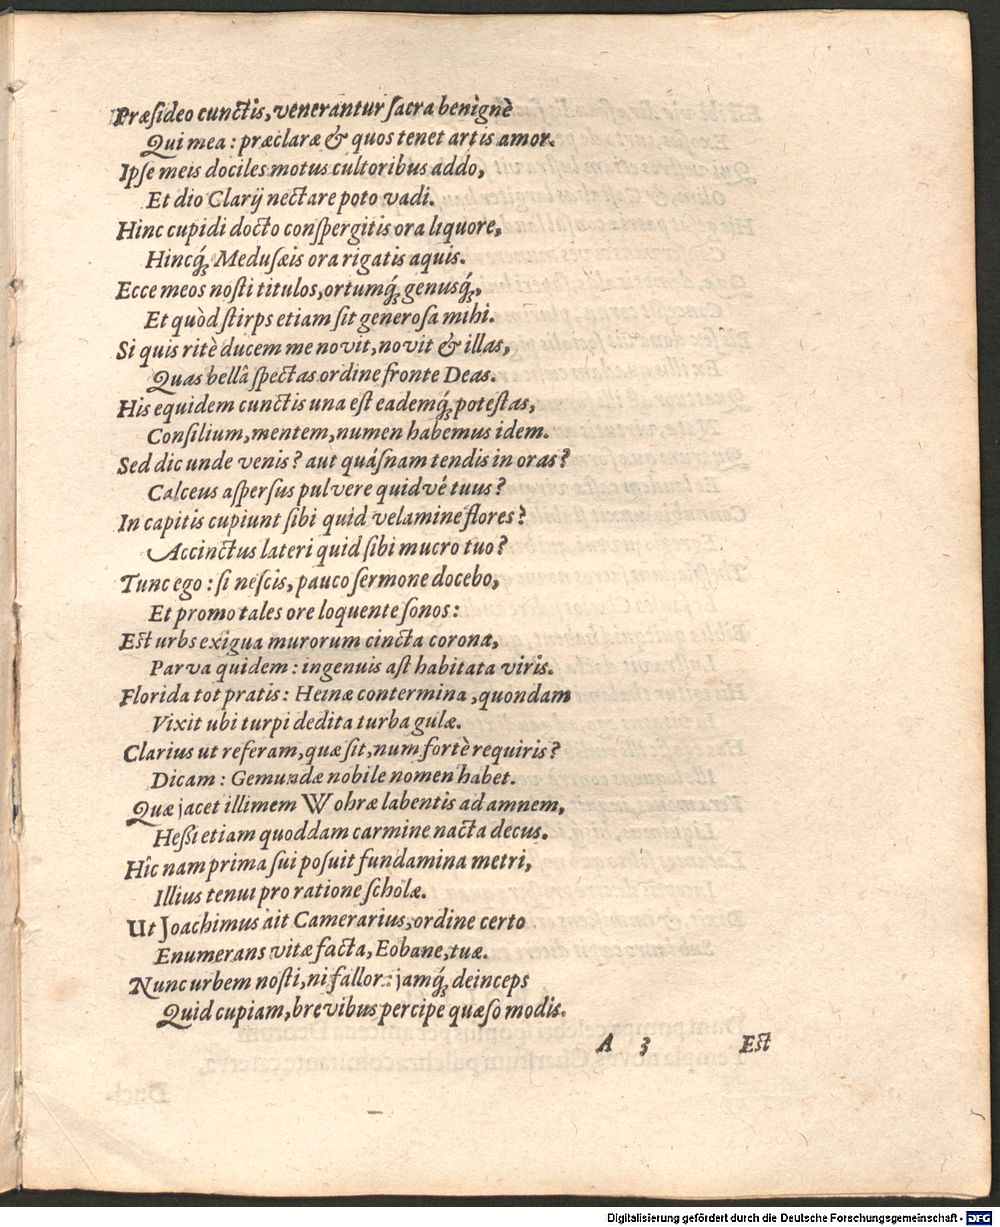 Præſideo cunctis, venerantur ſacra benignè
Qui mea: præclaræ & quos tenet artis amor.
Ipſe meis dociles motus cultoribus addo,
Et dio Clarij nectare poto vadi.
Hinc cupidi docto conſpergitis ora liquore,
Hincq́; Meduſæis ora rigatis aquis.
Ecce meos noſti titulos, ortumq́; genusq́;,
Et quòd ſtirps etiam ſit generoſa mihi.
Si quis ritè ducem me novit, novit & illas,
Quas bellâ ſpectas ordine fronte Deas.
His equidem cunctis una eſt eademq́; poteſtas,
Conſilium, mentem, numen habemus idem.
Sed dic unde venis? aut quáſnam tendis in oras?
Calceus aſperſus pulvere quid vé tuus?
In capitis cupiunt ſibi quid velamine flores?
Accinctus lateri quid ſibi mucro tuo?
Tunc ego: ſi neſcis, pauco ſermone docebo,
Et promo tales ore loquente ſonos:
Eſt urbs exigua murorum cincta corona,
Parva quidem: ingenuis aſt habitata viris.
Florida tot pratis: Heinæ contermina, quondam
Vixit ubi turpi dedita turba gulæ.
Clarius ut referam, quæ ſit, num fortè requiris?
Dicam: Gemundæ nobile nomen habet.
Quæ jacet illimem Wohræ labentis ad amnem,
Heſſi etiam quoddam carmine nacta decus.
Hîc nam prima ſui poſuit fundamina metri,
Illius tenui pro ratione ſcholæ.
Ut Joachimus ait Camerarius, ordine certo
Enumerans vitæ facta, Eobane, tuæ.
Nunc urbem noſti, ni fallor: jamq́; deinceps
Quid cupiam, brevibus percipe quæſo modis.
A 3 Eſt
Digitalisierung gefördert durch die Deutsche Forschungsgemeinschaft - DFG